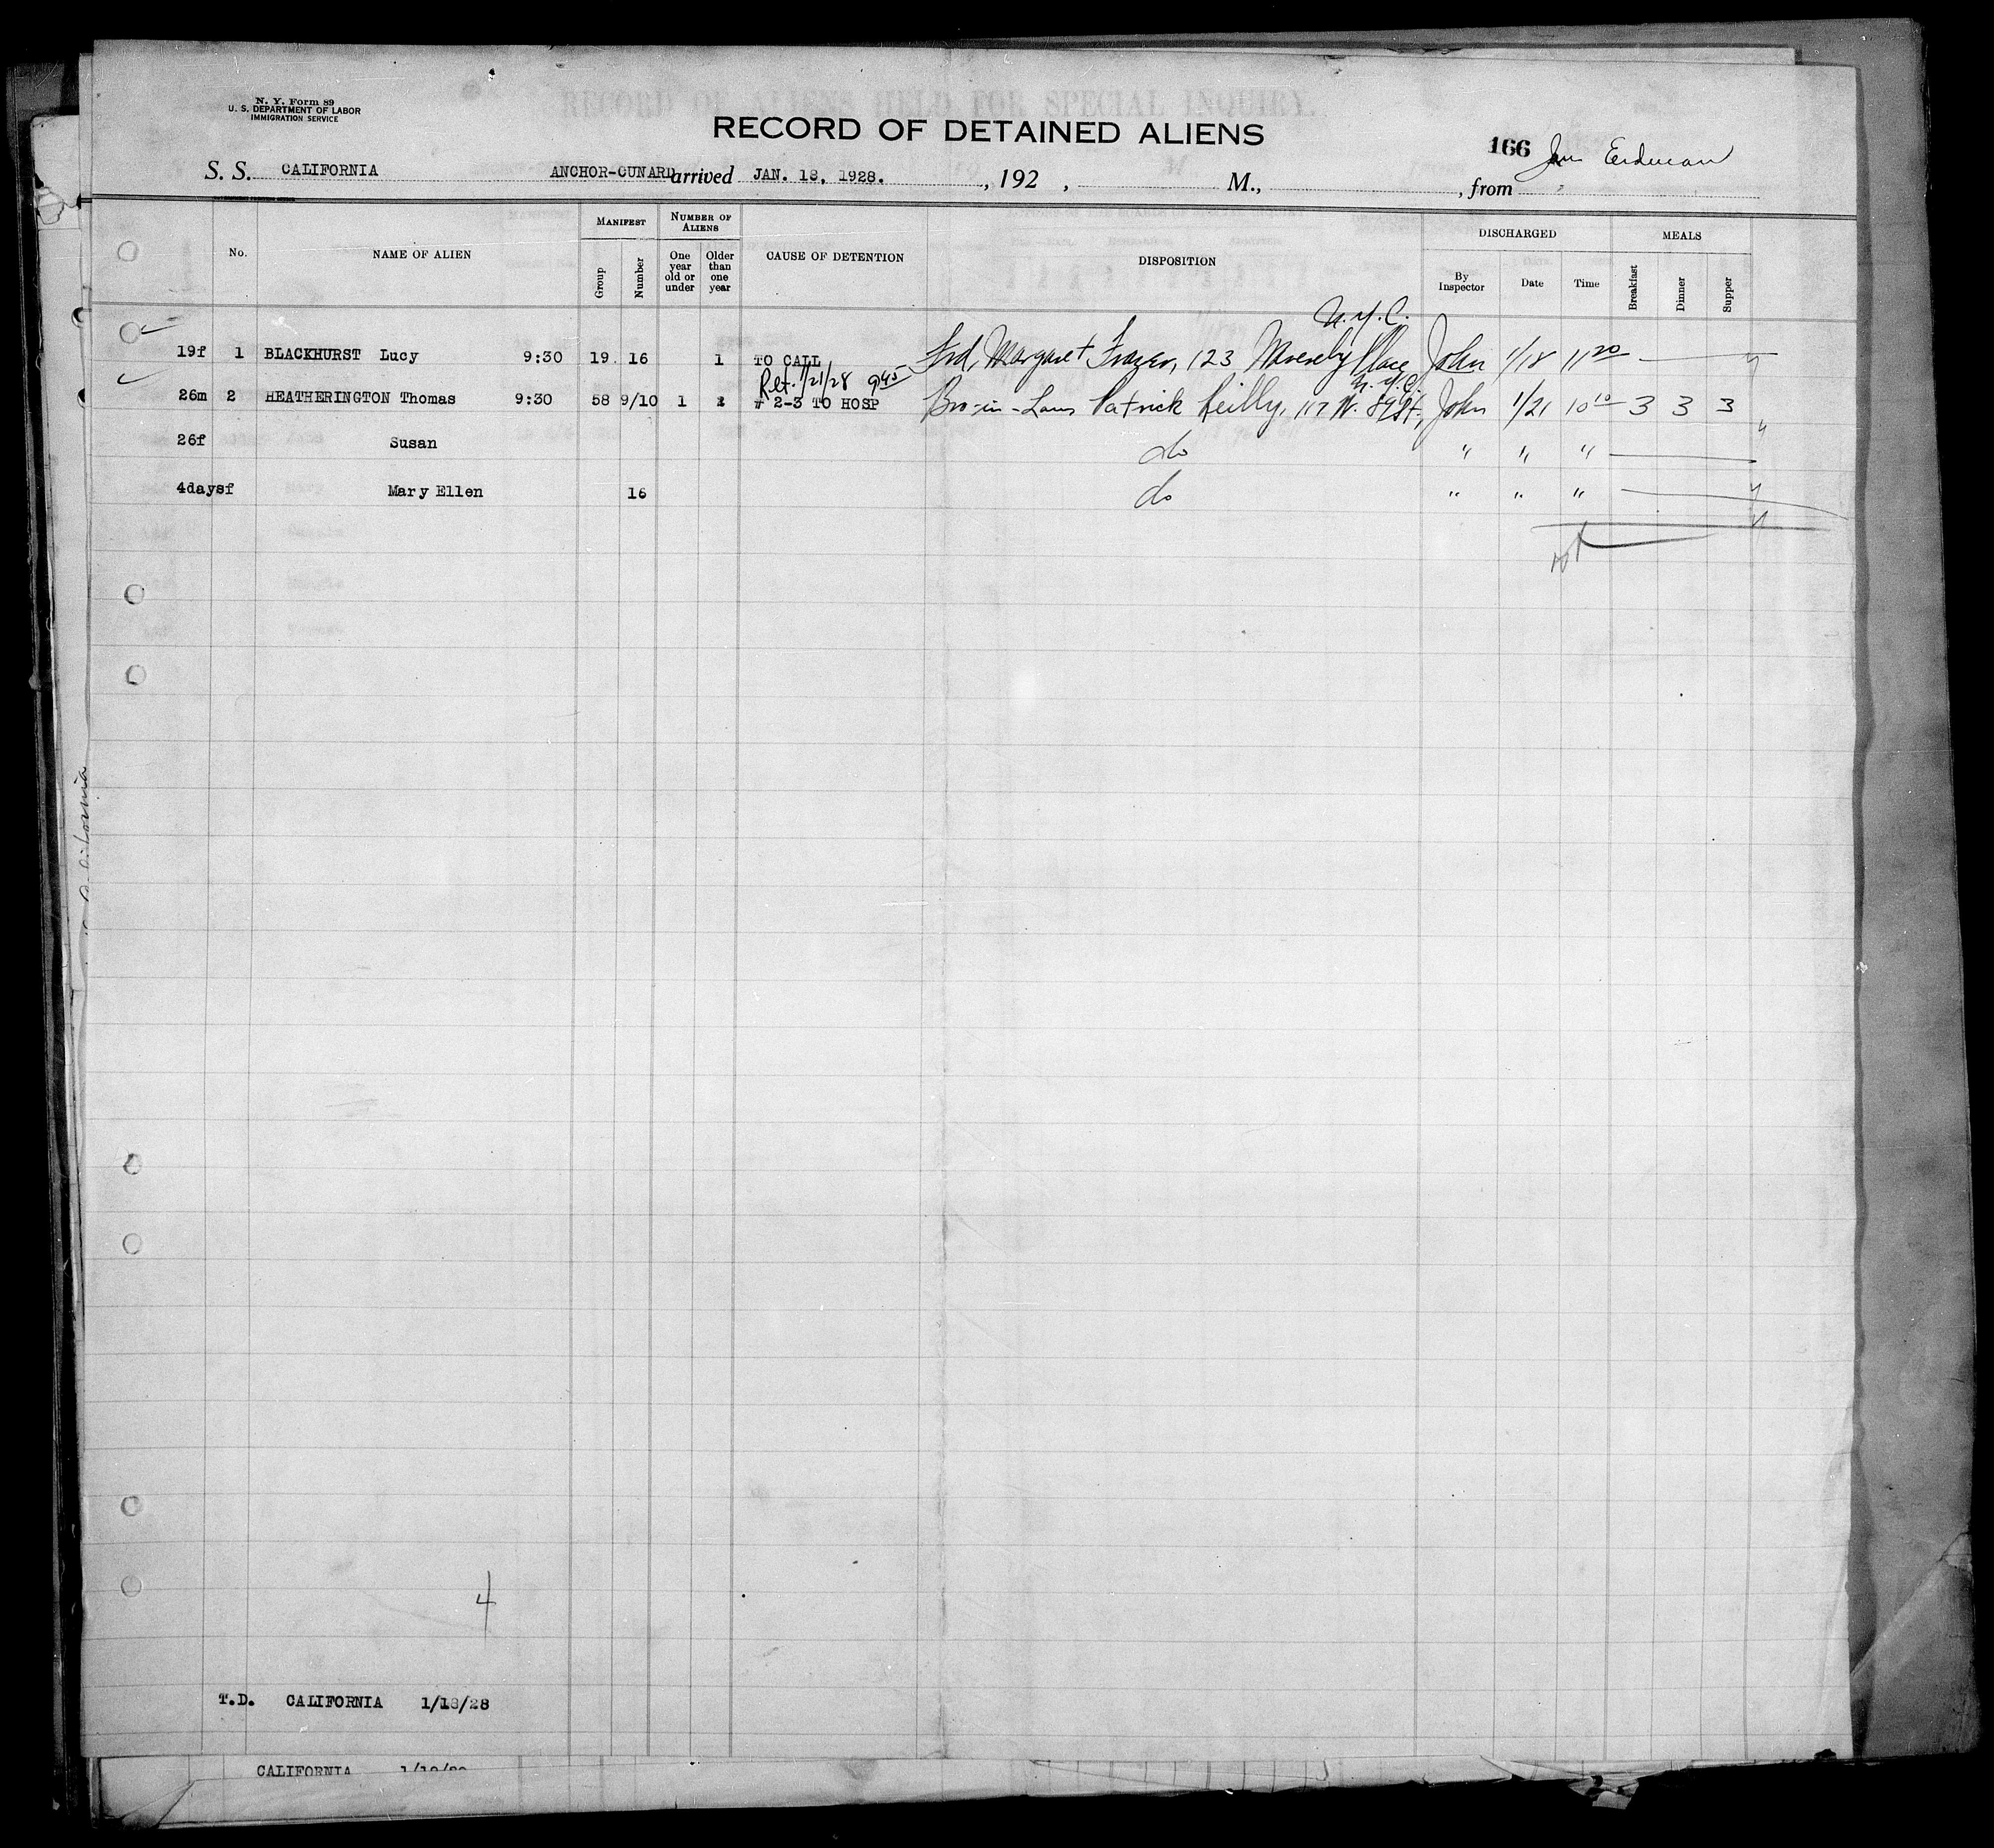 N. Y. Form 89
U. S. DEPARTMENT OF LABOR
IMMIGRATION SERVICE
RECORD OF ALIENS HELD FOR SPECIAL INQUIRY.
RECORD OF DETAINED ALIENS
166 Erdman
S. S. CALIFORNIA ANCHOR-CUNARD arrived JAN. 18, 1928. , 192 , M., , from
No. NAME OF ALIEN MANIFEST Group Number NUMBER OF ALIENS One year old or under Older than one year CAUSE OF DETENTION DISPOSITION DISCHARGED By Inspector Date Time MEALS Breakfast Dinner Supper
N.Y.C.
19f 1 BLACKHURST Lucy 9:30 19 16 1 TO CALL Frd, Margaret Frazer, 123 Waverly Place John 1/18 11 20
Ret. 1/21/28 9 45 N.Y.C.
26m 2 HEATHERINGTON Thomas 9:30 58 9/10 1 2 # 2-3 TO HOSP Bro-in-Law Patrick Reilly, 117 W. 89 St, John 1/21 10 10 3 3 3
26f Susan do " " "
4daysf Mary Ellen 16 do " " "
4
T.D. CALIFORNIA 1/18/28
CALIFORNIA